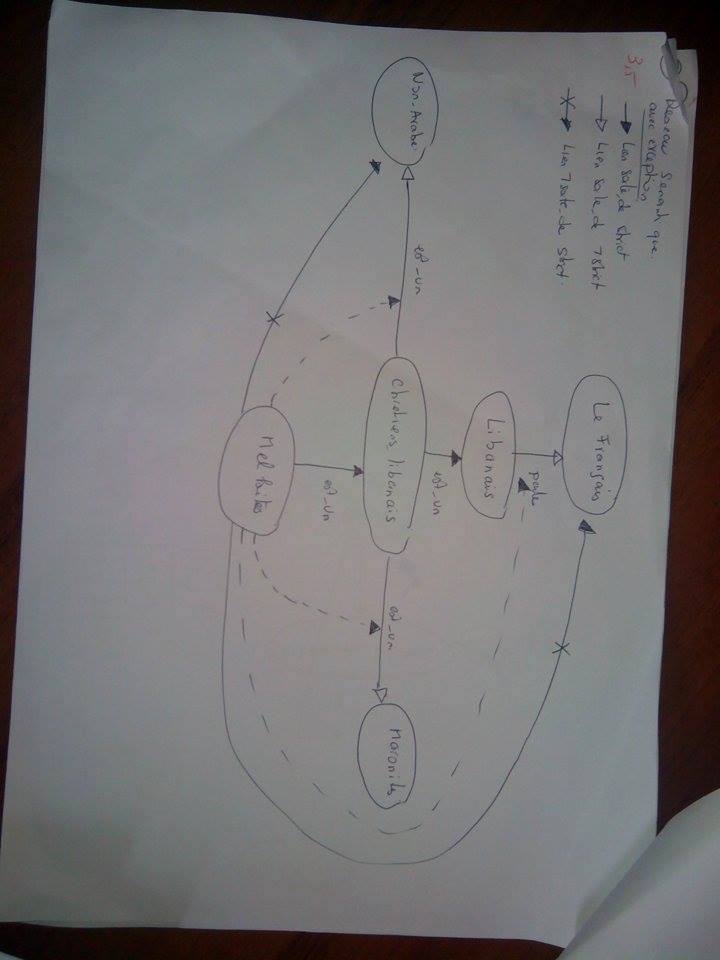 Reseau Semantique
avec exception
3,5
Lien
strict
Lien
¬strict
Lien
strict
Le Français
parle
Libanais
est_un
Non-Arabe
est_un
chretiens libanais
est_un
Maronites
est_un
Melkites